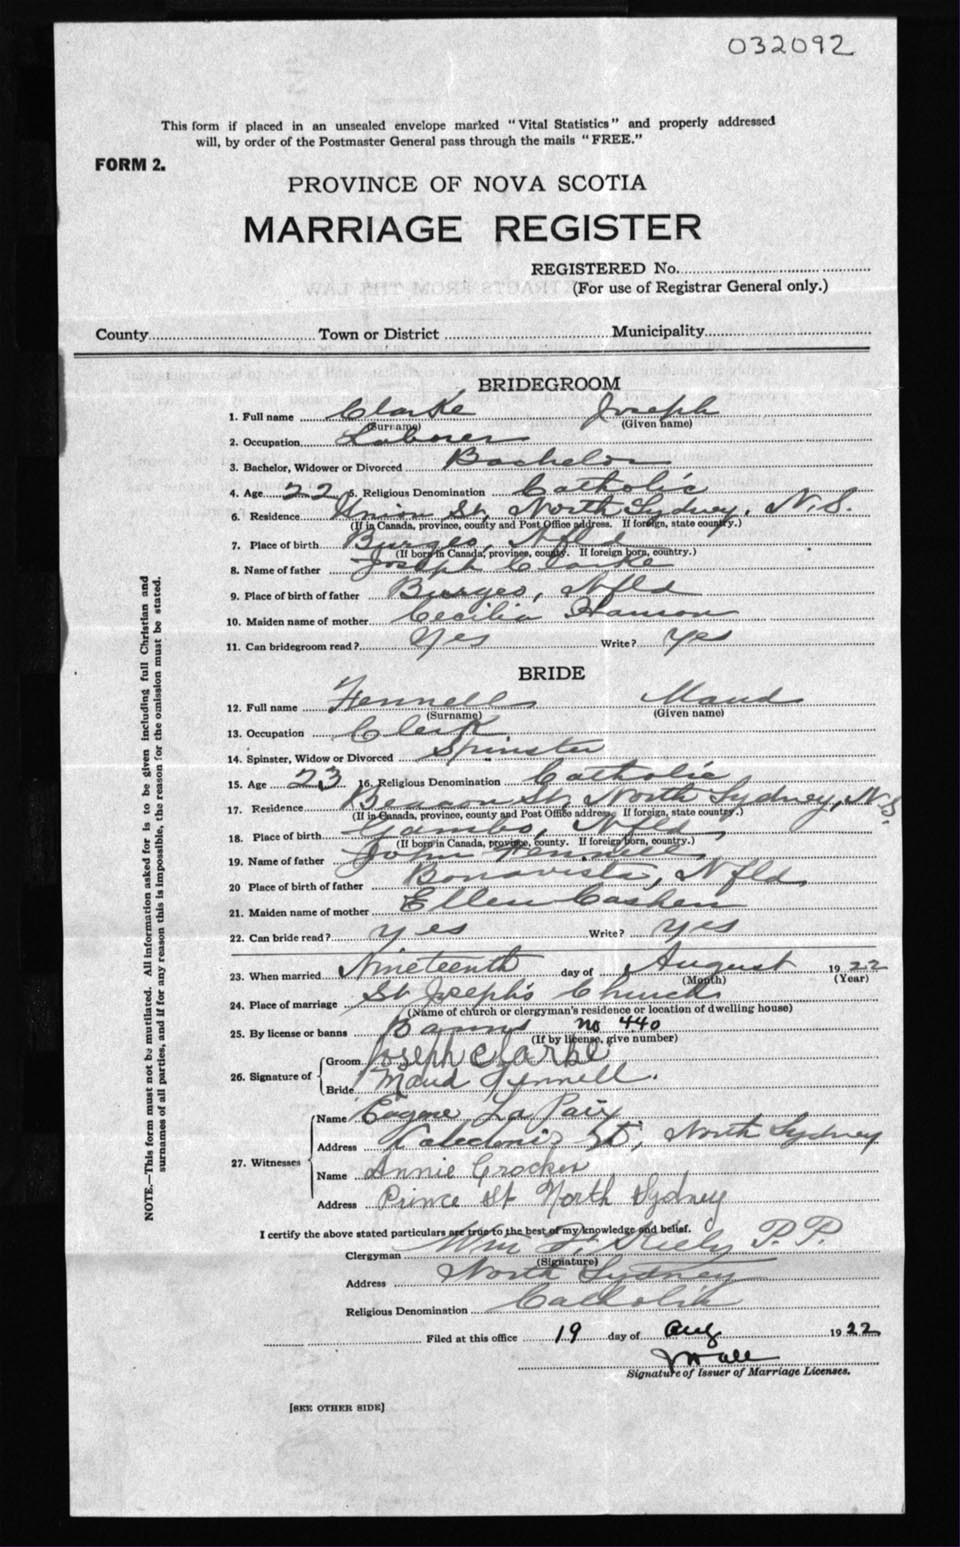 032092
This form if placed in an unsealed envelope marked "Vital Statistics" and properly addressed
will, by order of the Postmaster General pass through the mails "FREE."
FORM 2.
PROVINCE OF NOVA SCOTIA
MARRIAGE REGISTER
REGISTERED No.
(For use of Registrar General only.)
County Town or District Municipality
BRIDEGROOM
1. Full name Clarke Joseph
(Surname) (Given name)
2. Occupation Laborer
3. Bachelor, Widower or Divorced Bachelor
4. Age 22 5. Religious Denomination Catholic
6. Residence Union St, North Sydney, N.S.
(If in Canada, province, county and Post Office address. If foreign, state country.)
7. Place of birth Burges, Nfld
(If born in Canada, province, county. If foreign born, country.)
8. Name of father Joseph Clarke
9. Place of birth of father Burges, Nfld
10. Maiden name of mother Cecilia Hanson
11. Can bridegroom read? Yes Write? Yes
BRIDE
12. Full name Fennell Maud
(Surname) (Given name)
13. Occupation Clerk
14. Spinster, Widow or Divorced Spinster
15. Age 23 16. Religious Denomination Catholic
17. Residence Beacon St, North Sydney, N.S.
(If in Canada, province, county and Post Office address. If foreign, state country.)
18. Place of birth Gambo, Nfld,
(If born in Canada, province, county. If foreign born, country.)
19. Name of father John Fennell
20 Place of birth of father Bonavista, Nfld,
21. Maiden name of mother Ellen Cashen
22. Can bride read? Yes Write? Yes
23. When married Nineteenth day of August 1922
(Month) (Year)
24. Place of marriage St Joseph's Church
(Name of church or clergyman's residence or location of dwelling house)
25. By license or banns Banns no 440
(If by license, give number)
26. Signature of Groom Joseph Clarke
Bride Maud Fennell.
27. Witnesses Name Eugene La Paix
Address Caledonia St, North Sydney
Name Annie Crocker
Address Prince St North Sydney
I certify the above stated particulars are true to the best of my knowledge and belief.
Clergyman Wm F. P.P.
(Signature)
Address North Sydney
Religious Denomination Catholic
Filed at this office 19 day of Aug 1922
Signature of Issuer of Marriage Licenses.
[SEE OTHER SIDE]
NOTE.—This form must not be mutilated. All information asked for is to be given including full Christian and
surnames of all parties, and if for any reason this is impossible, the reason for the omission must be stated.